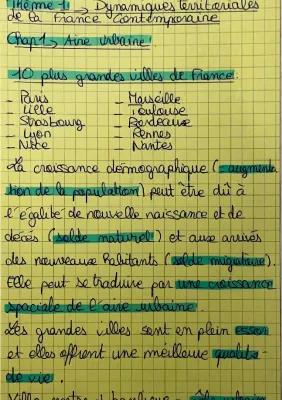 Thème 1: → Dynamiques territoriales
de la France Contemporaine
Chap 1 → Aire urbaine
10 plus grandes villes de France:
- Paris - Marseille
- Lille - Toulouse
- Strasbourg - Bordeaux
- Lyon - Rennes
- Nice - Nantes
La croissance démographique (= augmenta
tion de la population) peut être dû à
l'égalité de nouvelle naissance et de
décès (solde naturel) et aux arrivés
des nouveaux habitants (solde migratoire).
Elle peut se traduire par une croissance
spaciale de l'aire urbaine.
Les grandes villes sont en plein essor
et elles offrent une meilleure qualité
de vie.
Ville